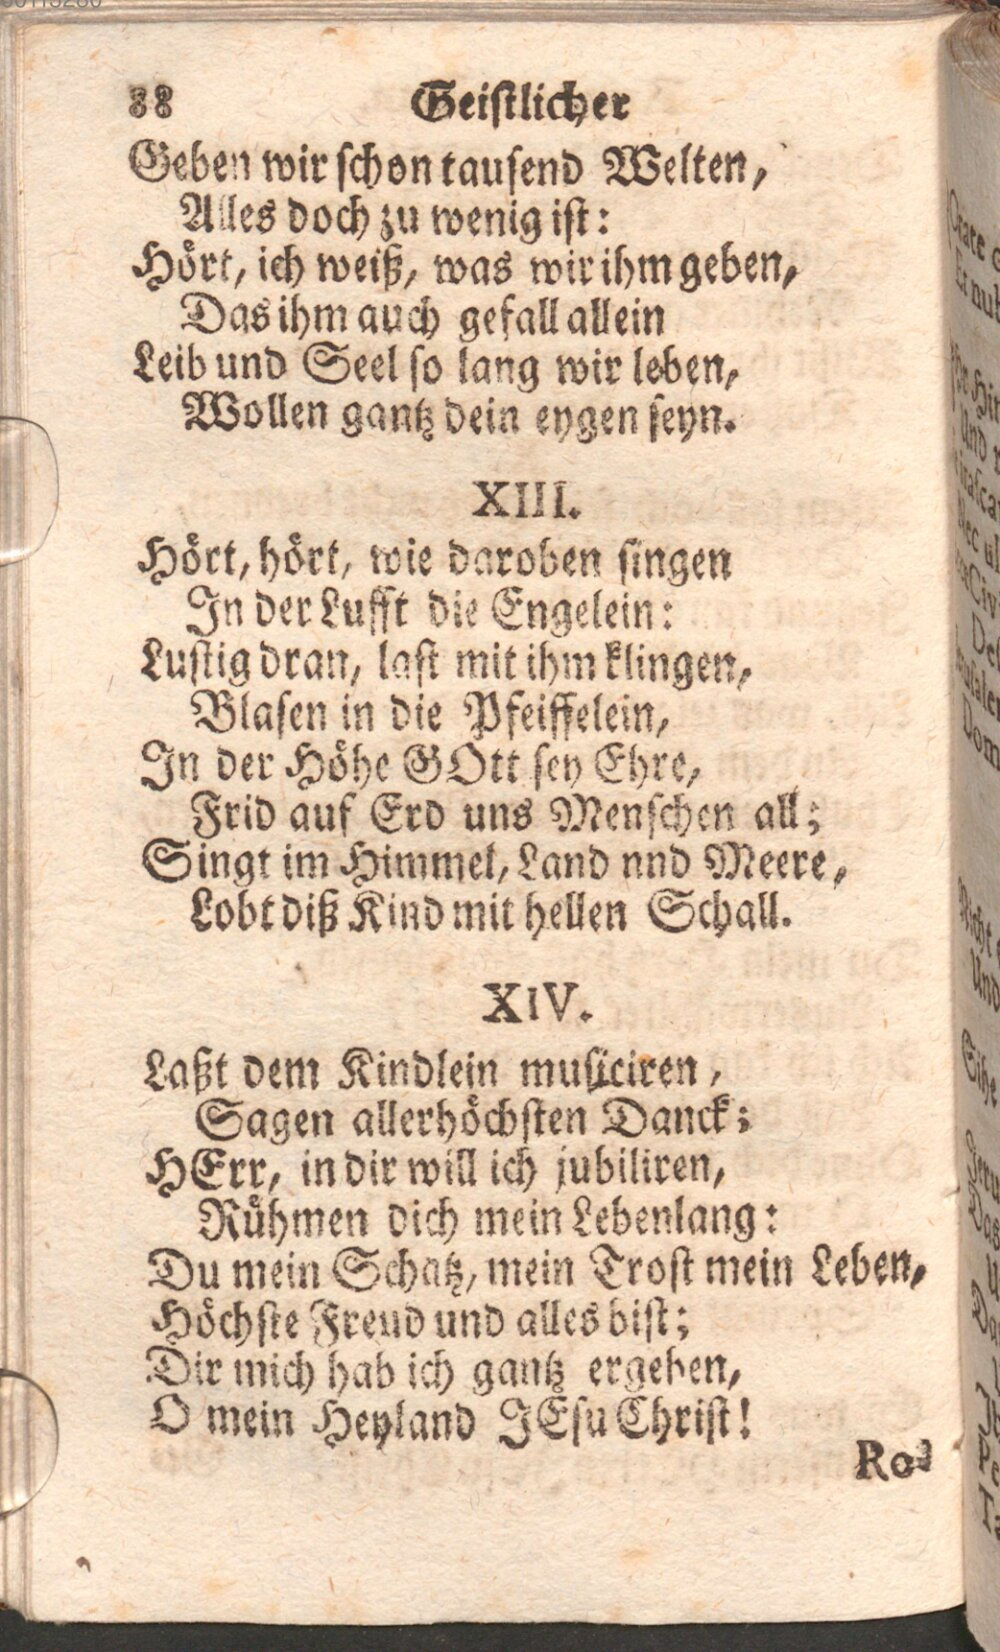 88 Geistlicher
Geben wir schon tausend Welten,
Alles doch zu wenig ist:
Hört, ich weiß, was wir ihm geben,
Das ihm auch gefall allein
Leib und Seel so lang wir leben,
Wollen gantz dein eygen seyn.
XIII.
Hört, hört, wie daroben singen
In der Lufft die Engelein:
Lustig dran, last mit ihm klingen,
Blasen in die Pfeiffelein,
In der Höhe GOtt sey Ehre,
Frid auf Erd uns Menschen all;
Singt im Himmel, Land nnd Meere,
Lobt diß Kind mit hellen Schall.
XIV.
Laßt dem Kindlein musiciren,
Sagen allerhöchsten Danck;
HErr, in dir will ich jubiliren,
Rühmen dich mein Lebenlang:
Du mein Schatz, mein Trost mein Leben,
Höchste Freud und alles bist;
Dir mich hab ich gantz ergeben,
O mein Heyland JEsu Christ!